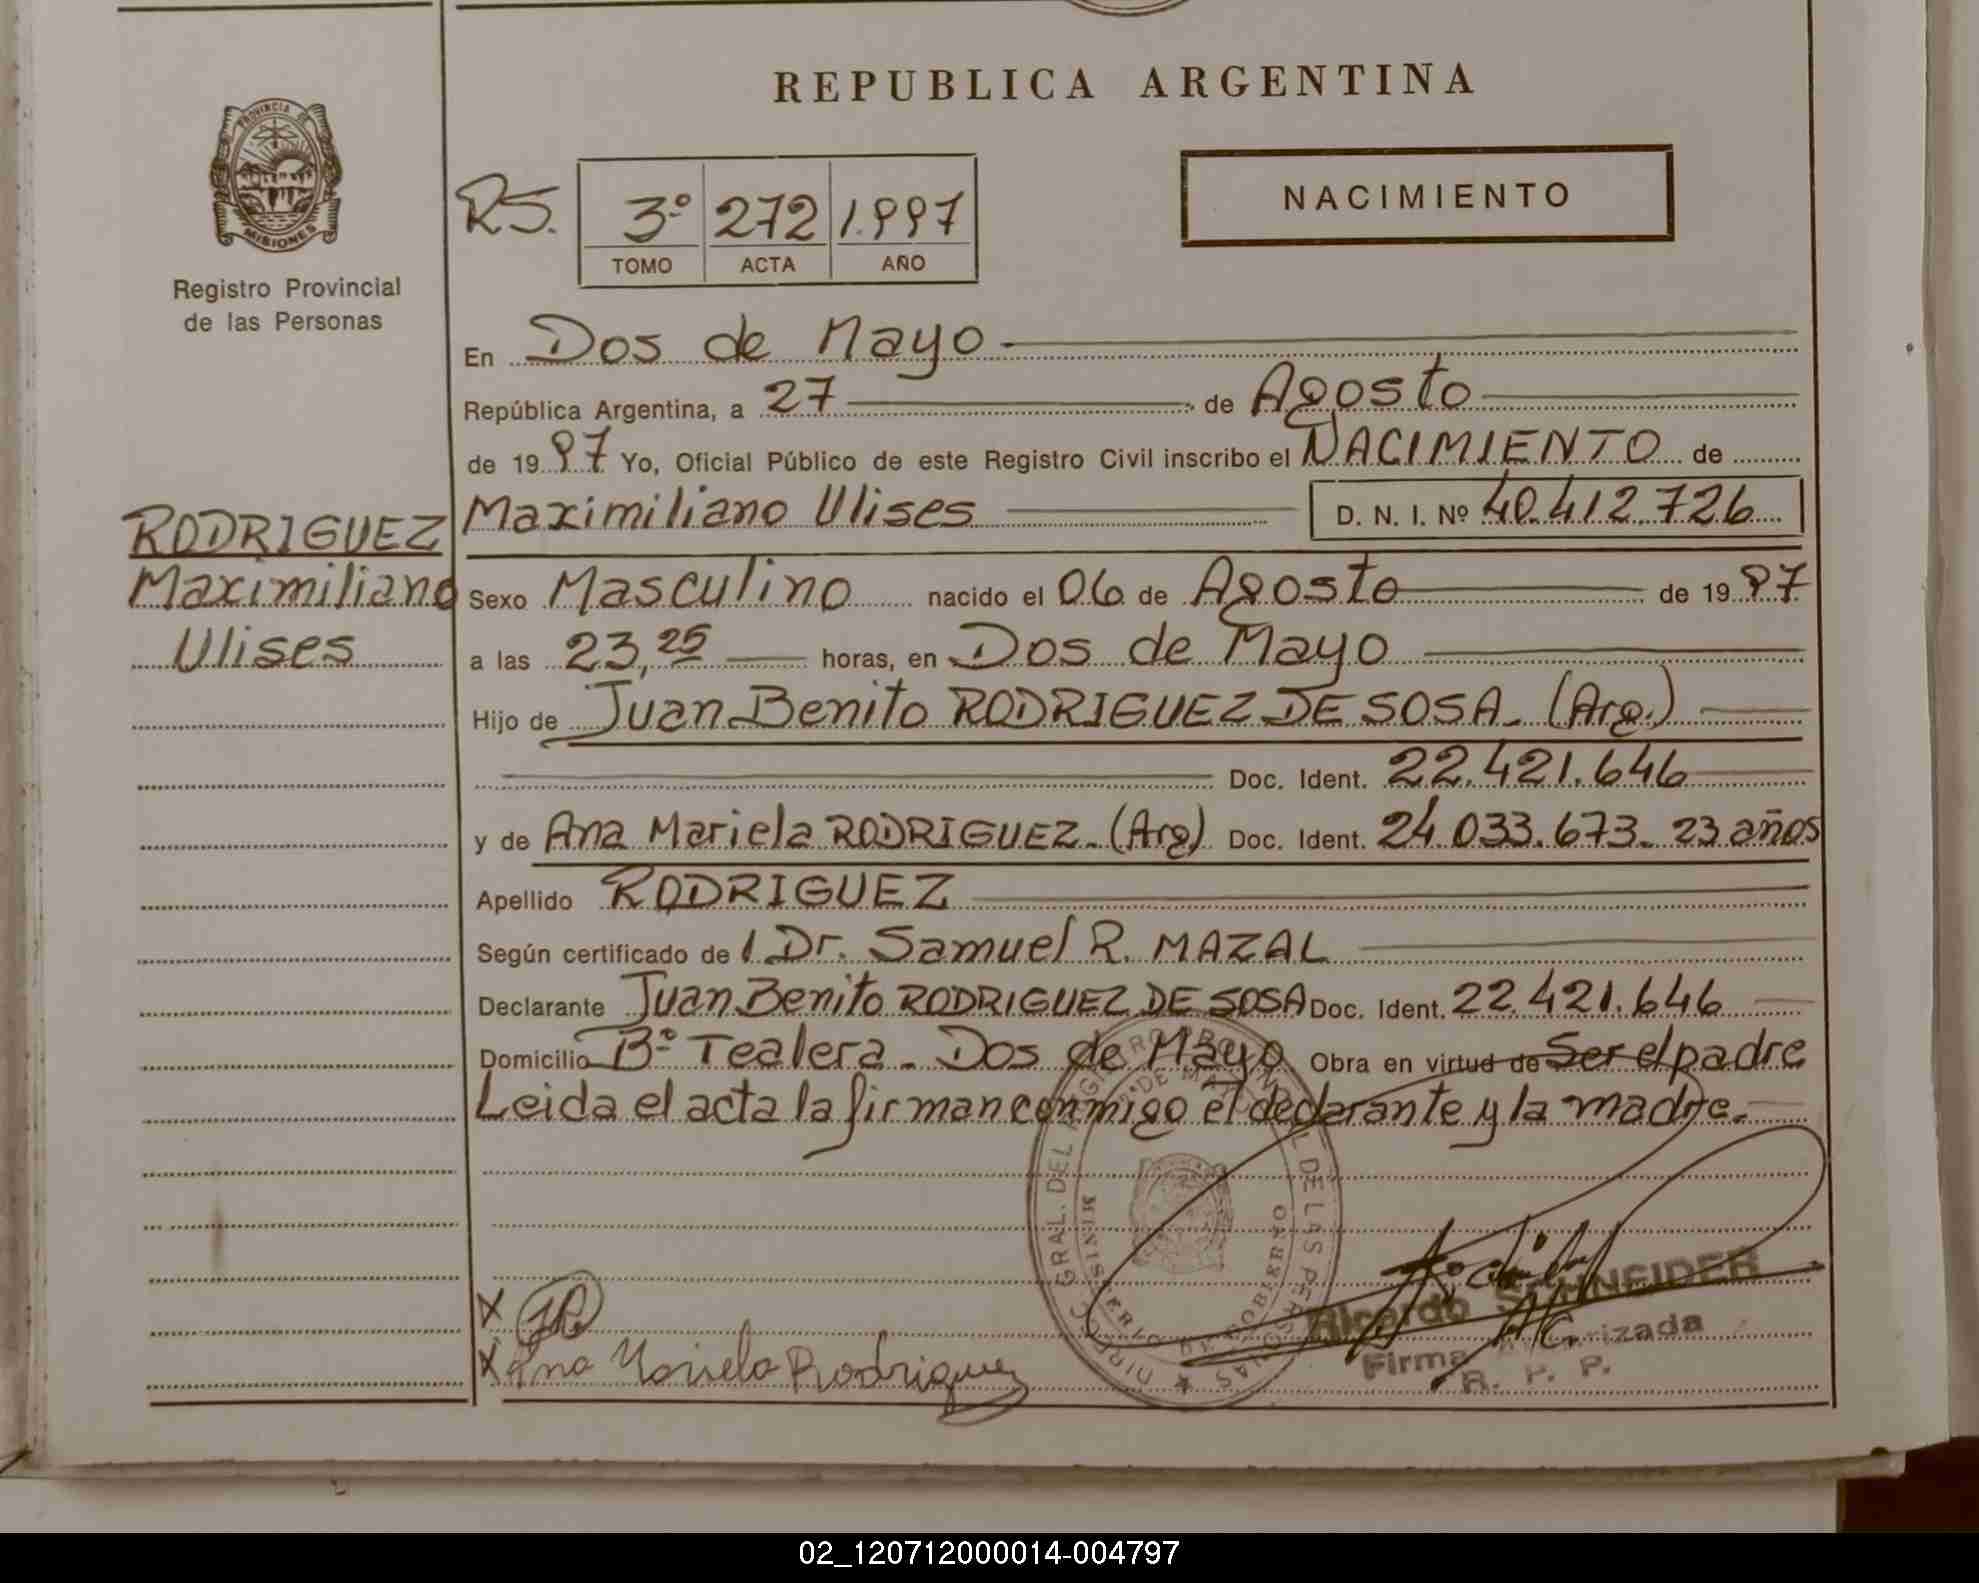 REPUBLICA ARGENTINA
PROVINCIA DE
MISIONES
Registro Provincial
de las Personas
R5.
3º 272 1.997
TOMO ACTA AÑO
NACIMIENTO
En Dos de Mayo
República Argentina, a 27 de Agosto
de 1997 Yo, Oficial Público de este Registro Civil inscribo el NACIMIENTO de
Maximiliano Ulises D. N. I. Nº 40.412.726
RODRIGUEZ
Maximiliano
Ulises
Sexo Masculino nacido el 06 de Agosto de 1997
a las 23,25 horas, en Dos de Mayo
Hijo de Juan Benito RODRIGUEZ DE SOSA. (Arg.)
Doc. Ident. 22.421.646
y de Ana Mariela RODRIGUEZ. (Arg) Doc. Ident. 24.033.673. 23 años
Apellido RODRIGUEZ
Según certificado de l Dr. Samuel R. MAZAL
Declarante Juan Benito RODRIGUEZ DE SOSA Doc. Ident. 22.421.646
Domicilio Bº Tealera. Dos de Mayo Obra en virtud de Ser el padre
Leida el acta la firman conmigo el declarante y la madre.
DIRECC. GRAL. DEL REGISTRO PROVINCIAL DE LAS PERSONAS
MINISTERIO DE GOBIERNO
2 DE MAYO
Ricardo SCHNEIDER
Firma Autorizada
R. P. P.
X
X Ana Mariela Rodriguez
02_120712000014-004797